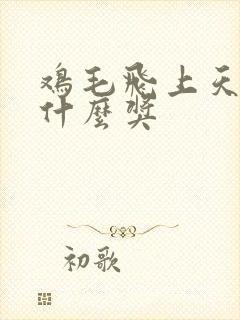 鸡毛飛上天
什麽獎
初歌